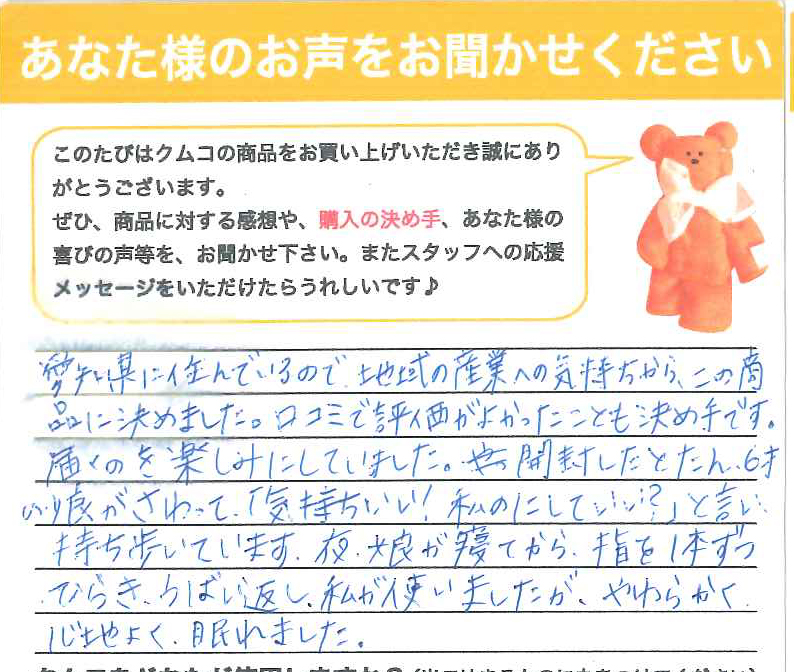 あなた様のお声をお聞かせください
このたびはクムコの商品をお買い上げいただき誠にあり
がとうございます。
ぜひ、商品に対する感想や、購入の決め手、あなた様の
喜びの声等を、お聞かせ下さい。またスタッフへの応援
メッセージをいただけたらうれしいです♪
愛知県に住んでいるので、地域の産業への気持ちから、この商
品に決めました。口コミで評価がよかったことも決め手です。
届くのを楽しみにしていました。開封したとたん、6才
の娘がさわって、「気持ちいい!私のにしていい?」と言い、
持ち歩いています。夜、娘が寝てから、指を1本ずつ
ひらき、うばい返し、私が使いましたが、やわらかく
心地よく、眠れました。